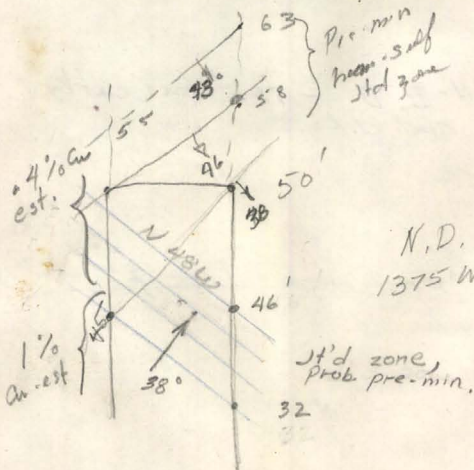 63
Pre-min
hem-self
Jtd zone
43°
58
55
46
.4% Cu
est.
50'
38
N 48 W
N.D.
1375 W
46'
45
1%
Cu-est
38°
Jt'd zone,
prob. pre-min.
32
32